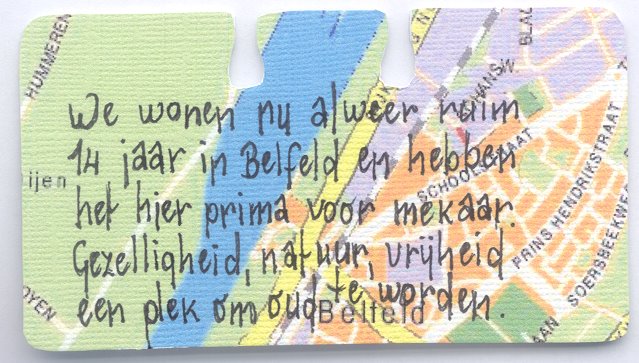 HUMMEREN
BLAU
We wonen nu alweer ruim
14 jaar in Belfeld en hebben
het hier prima voor mekaar.
Gezelligheid, natuur, vrijheid
een plek om oud te worden.
ijen
OYEN
SCHOOLSTRAAT
PRINS HENDRIKSTRAAT
SOERSBEEKWEG
AAN
Belfeld